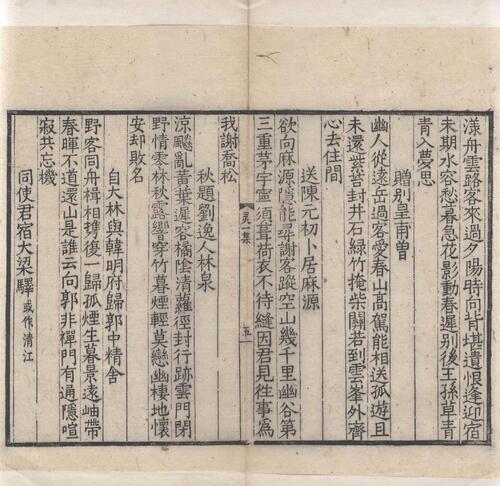 漾舟雲路客來過夕陽時向背堪遺恨逢迎宿
未期水容愁暮急花影動春遲別後王孫草青
青入夢思
贈別皇甫曾
幽人從遠岳過客愛春山高駕能相送孤遊且
未還紫苔封井石綠竹掩柴關若到雲峯外齊
心去住間
送陳元初卜居麻源
欲向麻源隱能尋謝客蹤空山幾千里幽谷第
三重茅宇寧須葺荷衣不待縫因君見往事為
灵一集
五
我謝喬松
秋題劉逸人林泉
涼飈亂黃葉遲容橘陰清蘿徑封行跡雲門閉
野情零林秋露響穿竹暮煙輕莫戀幽棲地懷
安却敗名
自大林與韓明府歸郭中精舍
野客同舟楫相攜復一歸孤煙生暮景遠岫帶
春暉不道還山是誰云向郭非禪門有通隱喧
寂共忘機
同使君宿大梁驛或作清江